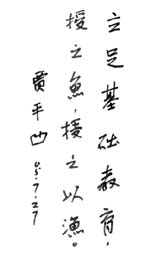 立足基础教育，
授之魚，授之以漁。
賈平凹 05.7.27